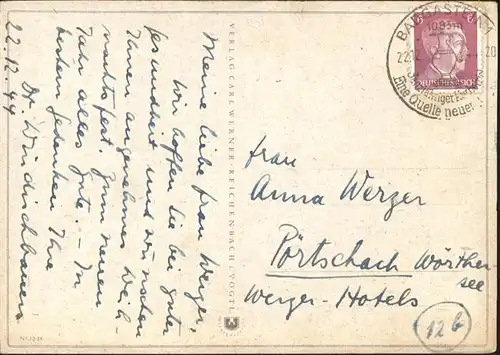 Meine liebe Frau Werzer,
wir hoffen Sie bei guter
Gesundheit und wünschen
Ihnen angenehmes Weih-
nachtsfest. Zum neuen
Jahr alles Gute. – In
bestem Gedenken Ihre
Dr. Windischbauer
22.12.44
VERLAG CARL WERNER, REICHENBACH I. VOGTL.
BADGASTEIN 1
1083m
22.12.
20
Eine Quelle neuer
DEUTSCHES REICH
Frau
Anna Werzer
Pörtschach Wörther
see
Werzer-Hotels
12b